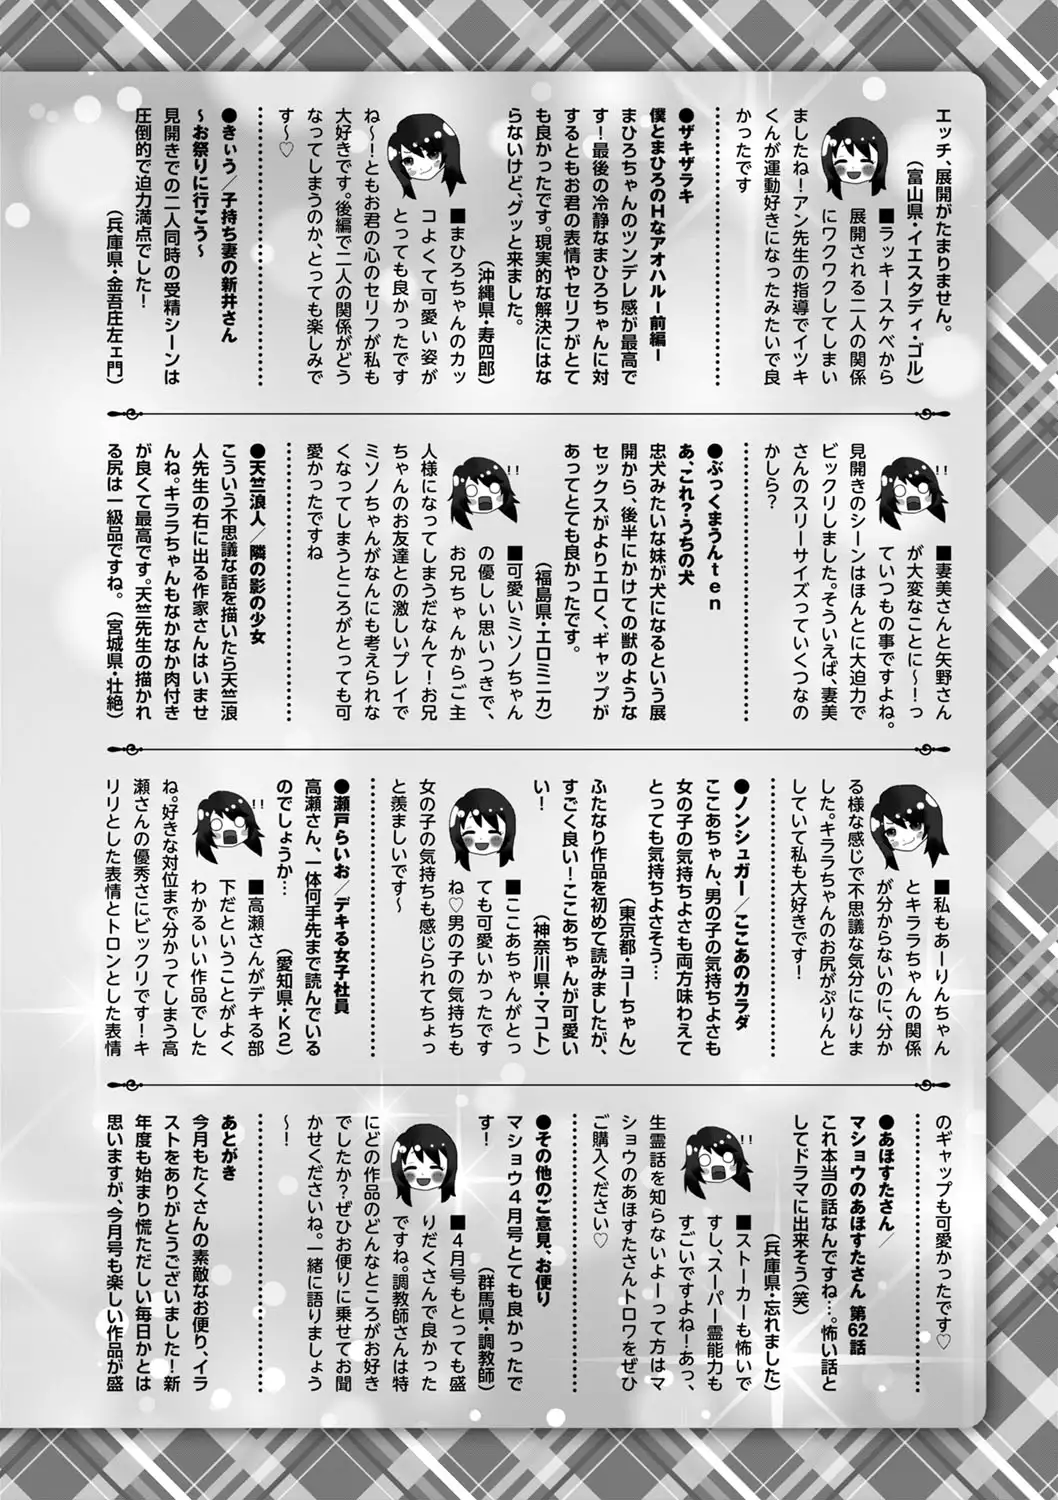 エッチ、展開がたまりません。
(富山県・イエスタディ・ゴル)
■ラッキースケベから
展開される二人の関係
にワクワクしてしまい
ましたね！アン先生の指導でイツキ
くんが運動好きになったみたいで良
かったです
●ザキザラキ
僕とまひろのHなアオハルー前編ー
まひろちゃんのツンデレ感が最高で
す！最後の冷静なまひろちゃんに対
するともお君の表情やセリフがとて
も良かったです。現実的な解決にはな
らないけど、グッと来ました。
(沖縄県・寿四郎)
■まひろちゃんのカッ
コよくて可愛い姿が
とっても良かったです
ね〜！ともお君の心のセリフが私も
大好きです。後編で二人の関係がどう
なってしまうのか、とっても楽しみで
す〜♡
●きぃう／子持ち妻の新井さん
〜お祭りに行こう〜
見開きでの二人同時の受精シーンは
圧倒的で迫力満点でした！
(兵庫県・金吾庄左ェ門)
■妻美さんと矢野さん
が大変なことに〜！っ
ていつもの事ですよね。
見開きのシーンはほんとに大迫力で
ビックリしました。そういえば、妻美
さんのスリーサイズっていくつなの
かしら？
●ぶっくまうんten
あ、これ？うちの犬
忠犬みたいな妹が犬になるという展
開から、後半にかけての獣のような
セックスがよりエロく、ギャップが
あってとても良かったです。
(福島県・エロミニカ)
■可愛いミソノちゃん
の優しい思いつきで、
お兄ちゃんからご主
人様になってしまうだなんて！お兄
ちゃんのお友達との激しいプレイで
ミソノちゃんがなんにも考えられな
くなってしまうところがとっても可
愛かったですね
●天竺浪人／隣の影の少女
こういう不思議な話を描いたら天竺浪
人先生の右に出る作家さんはいませ
んね。キララちゃんもなかなか肉付き
が良くて最高です。天竺先生の描かれ
る尻は一級品ですね。(宮城県・壮絶)
■私もあーりんちゃん
とキララちゃんの関係
が分からないのに、分か
る様な感じで不思議な気分になりま
した。キララちゃんのお尻がぷりんと
していて私も大好きです！
●ノンシュガー／ここあのカラダ
ここあちゃん、男の子の気持ちよさも
女の子の気持ちよさも両方味わえて
とっても気持ちよさそう…
(東京都・ヨーちゃん)
ふたなり作品を初めて読みましたが、
すごく良い！ここあちゃんが可愛い
い！(神奈川県・マコト)
■ここあちゃんがとっ
ても可愛いかったです
ね♡男の子の気持ちも
女の子の気持ちも感じられてちょっ
と羨ましいです〜
●瀬戸らいお／デキる女子社員
高瀬さん、一体何手先まで読んでいる
のでしょうか…(愛知県・K2)
■高瀬さんがデキる部
下だということがよく
わかるいい作品でした
ね。好きな対位まで分かってしまう高
瀬さんの優秀さにビックリです！キ
リリとした表情とトロンとした表情
のギャップも可愛かったです♡
●あほすたさん／
マショウのあほすたさん 第62話
これ本当の話なんですね…。怖い話と
してドラマに出来そう(笑)
(兵庫県・忘れました)
■ストーカーも怖いで
すし、スーパー霊能力も
すごいですよね！あっ、
生霊話を知らないよーって方はマ
ショウのあほすたさんトロワをぜひ
ご購入ください♡
●その他のご意見、お便り
マショウ4月号とても良かったで
す！(群馬県・調教師)
■4月号もとっても盛
りだくさんで良かった
ですね。調教師さんは特
にどの作品のどんなところがお好き
でしたか？ぜひお便りに乗せてお聞
かせくださいね。一緒に語りましょう
〜！
あとがき
今月もたくさんの素敵なお便り、イラ
ストをありがとうございました！新
年度も始まり慌ただしい毎日かとは
思いますが、今月号も楽しい作品が盛